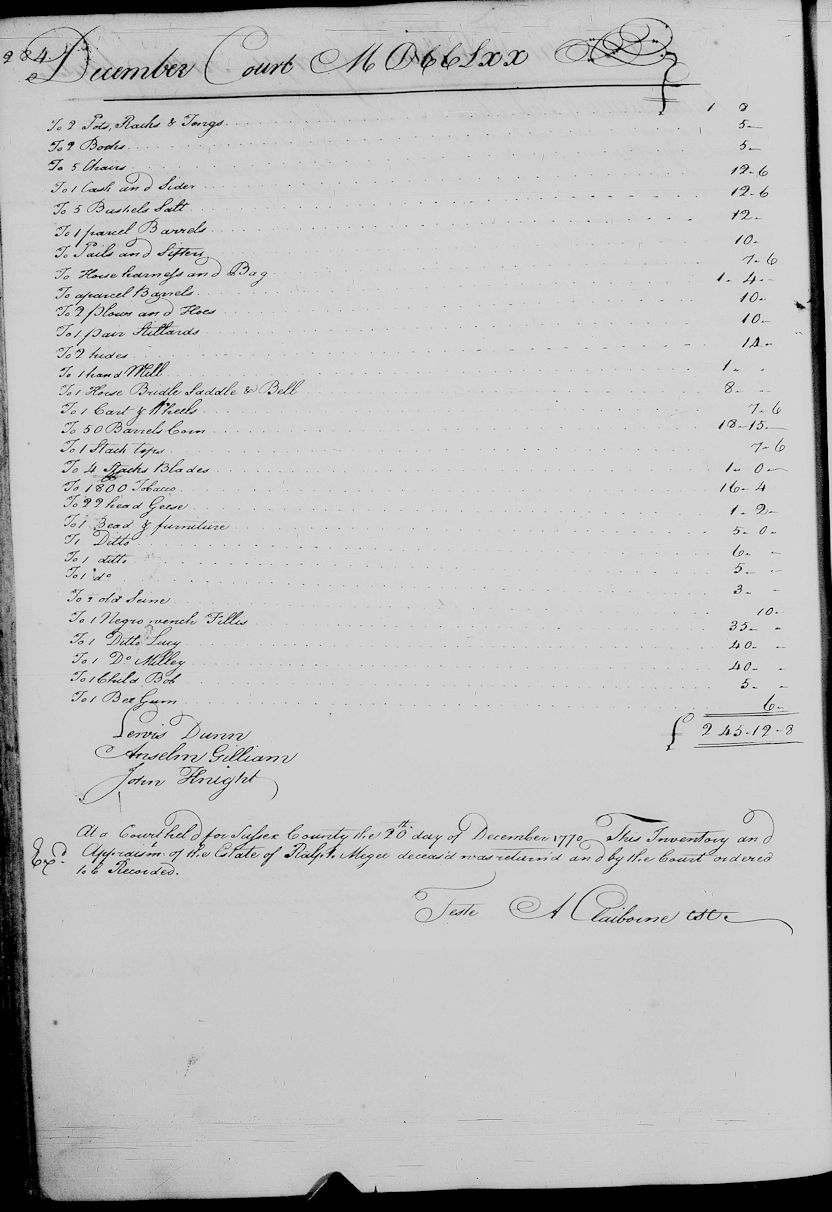 284
December Court MDCCLXX
£
To 2 Pots, Racks & Tongs 1 3
To 2 Books 5
To 5 Chairs 5
To 1 Cash and Sider 12-6
To 5 Bushels Salt 12-6
To 1 parcel Barrels 12-
To Pails and Sifters 10-
To Horse harness and Bag 7-6
To a parcel Barrels 1-4-
To 2 plows and Hoes 10-
To 1 pair Stillards 10-
To 2 hides 14-
To 1 hand Mill 1-
To 1 Horse Bridle Saddle & Bell 8-
To 1 Cart & Wheels 7-6
To 50 Barrels Corn 18-15-
To 1 Stack tops 7-6
To 4 Stacks Blades 1-0-
To 1800 Tobacco 16-4
To 22 head Geese 1-2-
To 1 Bead & furniture 5-0-
To 1 Ditto 6-
To 1 ditto 5-
To 1 do 3-
To 1 old Seine 10-
To 1 Negro wench Fillis 35-
To 1 Ditto Lucy 40-
To 1 Do Milley 40-
To 1 Child Bob 5-
To 1 Bee Gum 6-
Lewis Dunn £ 245-12-8
Anselm Gilliam
John Knight
At a Court held for Sussex County the 20th day of December 1770 This Inventory and
Exd. Appraism. of the Estate of Ralph Megee deceas'd was return'd and by the Court ordered
to b Recorded.
Teste A Claiborne